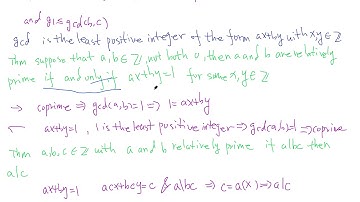 and g1 ≤ gcd(b,c)
gcd is the least positive integer of the form ax+by with x,y ∈ ℤ
Thm suppose that a,b ∈ ℤ, not both 0, then a and b are relatively
prime if and only if ax+by=1 for some x,y ∈ ℤ
→ coprime ⇒ gcd(a,b)=1 ⇒ 1=ax+by
← ax+by=1, 1 is the least positive integer ⇒ gcd(a,b)=1 ⇒ coprime
Thm a,b,c ∈ ℤ with a and b relatively prime if a|bc then
a|c
ax+by=1 acx+bcy=c & a|bc ⇒ c=a(x) ⇒ a|c